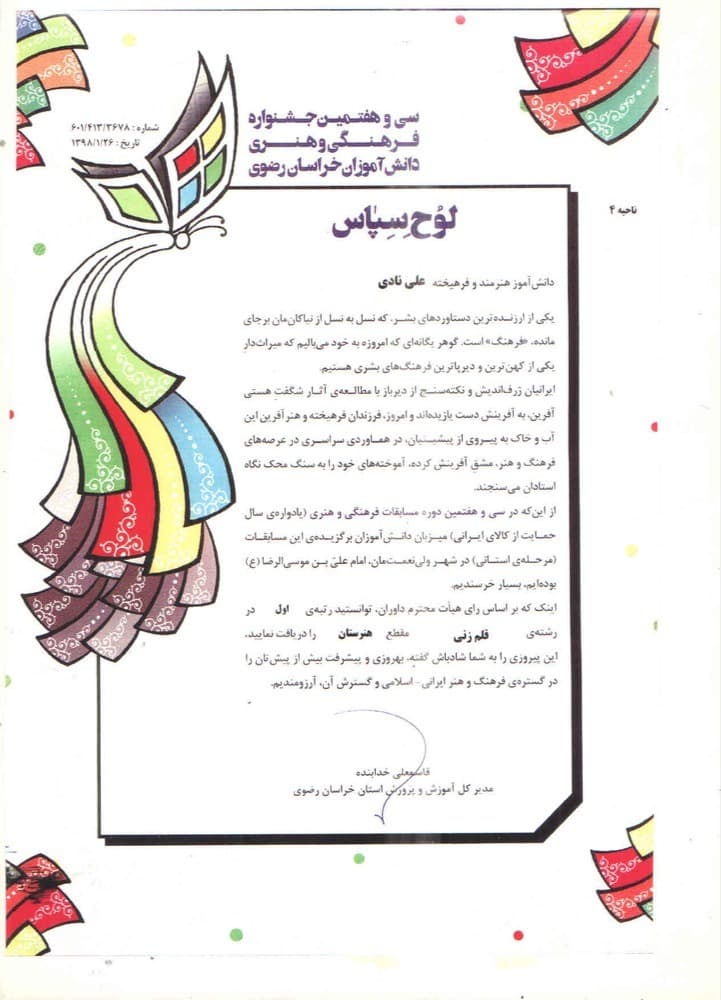 سی و هفتمین جشنواره
فرهنگی و هنری
دانش‌آموزان خراسان رضوی
شماره : ۶۰۱/۴۱۳/۳۶۷۸
تاریخ : ۱۳۹۸/۱/۲۶
ناحیه ۴
لوْحِ سِپاس
دانش‌آموز هنرمند و فرهیخته علی نادی
یکی از ارزنده‌ترین دستاوردهای بشر، که نسل به نسل از نیاکان‌مان برجای
مانده، «فرهنگ» است. گوهر یگانه‌ای که امروزه به خود می‌بالیم که میراث‌دار
یکی از کهن‌ترین و دیرپاترین فرهنگ‌های بشری هستیم.
ایرانیان ژرف‌اندیش و نکته‌سنج از دیرباز با مطالعه‌ی آثار شگفت هستی
آفرین، به آفرینش دست یازیده‌اند و امروز، فرزندان فرهیخته و هنر آفرین این
آب و خاک به پیروی از پیشینیان، در هماوردی سراسری در عرصه‌های
فرهنگ و هنر، مشقِ آفرینش کرده، آموخته‌های خود را به سنگ محک نگاه
استادان می‌سنجند.
از این‌که در سی و هفتمین دوره مسابقات فرهنگی و هنری (یادواره‌ی سال
حمایت از کالای ایرانی) میزبان دانش‌آموزان برگزیده‌ی این مسابقات
(مرحله‌ی استانی) در شهر ولی‌نعمت‌مان، امام علیّ بن موسی‌الرضا (ع)
بوده‌ایم، بسیار خرسندیم.
اینک که بر اساس رای هیأت محترم داوران، توانستید رتبه‌ی اول در
رشته‌ی قلم زنی مقطع هنرستان را دریافت نمایید،
این پیروزی را به شما شادباش گفته، بهروزی و پیشرفت بیش از پیش‌تان را
در گستره‌ی فرهنگ و هنر ایرانی - اسلامی و گسترش آن، آرزومندیم.
قاسمعلی خدابنده
مدیر کل آموزش و پرورش استان خراسان رضوی